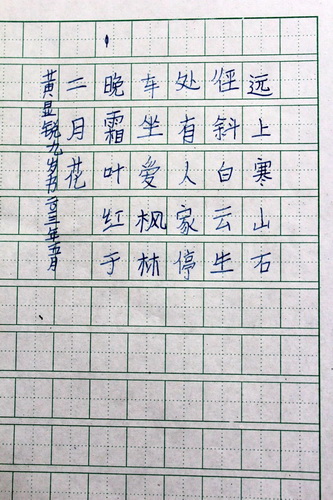 远上寒山石
径斜白云生
处有人家停
车坐爱枫林
晚霜叶红于
二月花
黄显锐九岁书三年五月